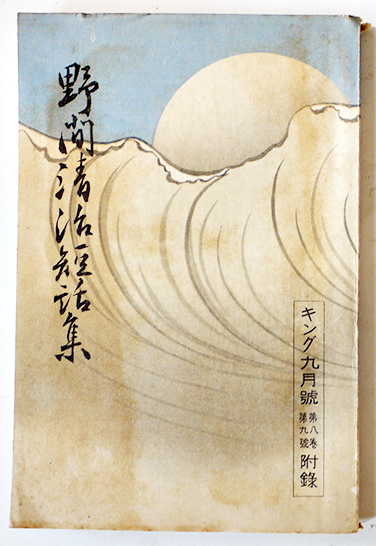 野間清治短話集
キング九月號 第八巻第九號 附錄